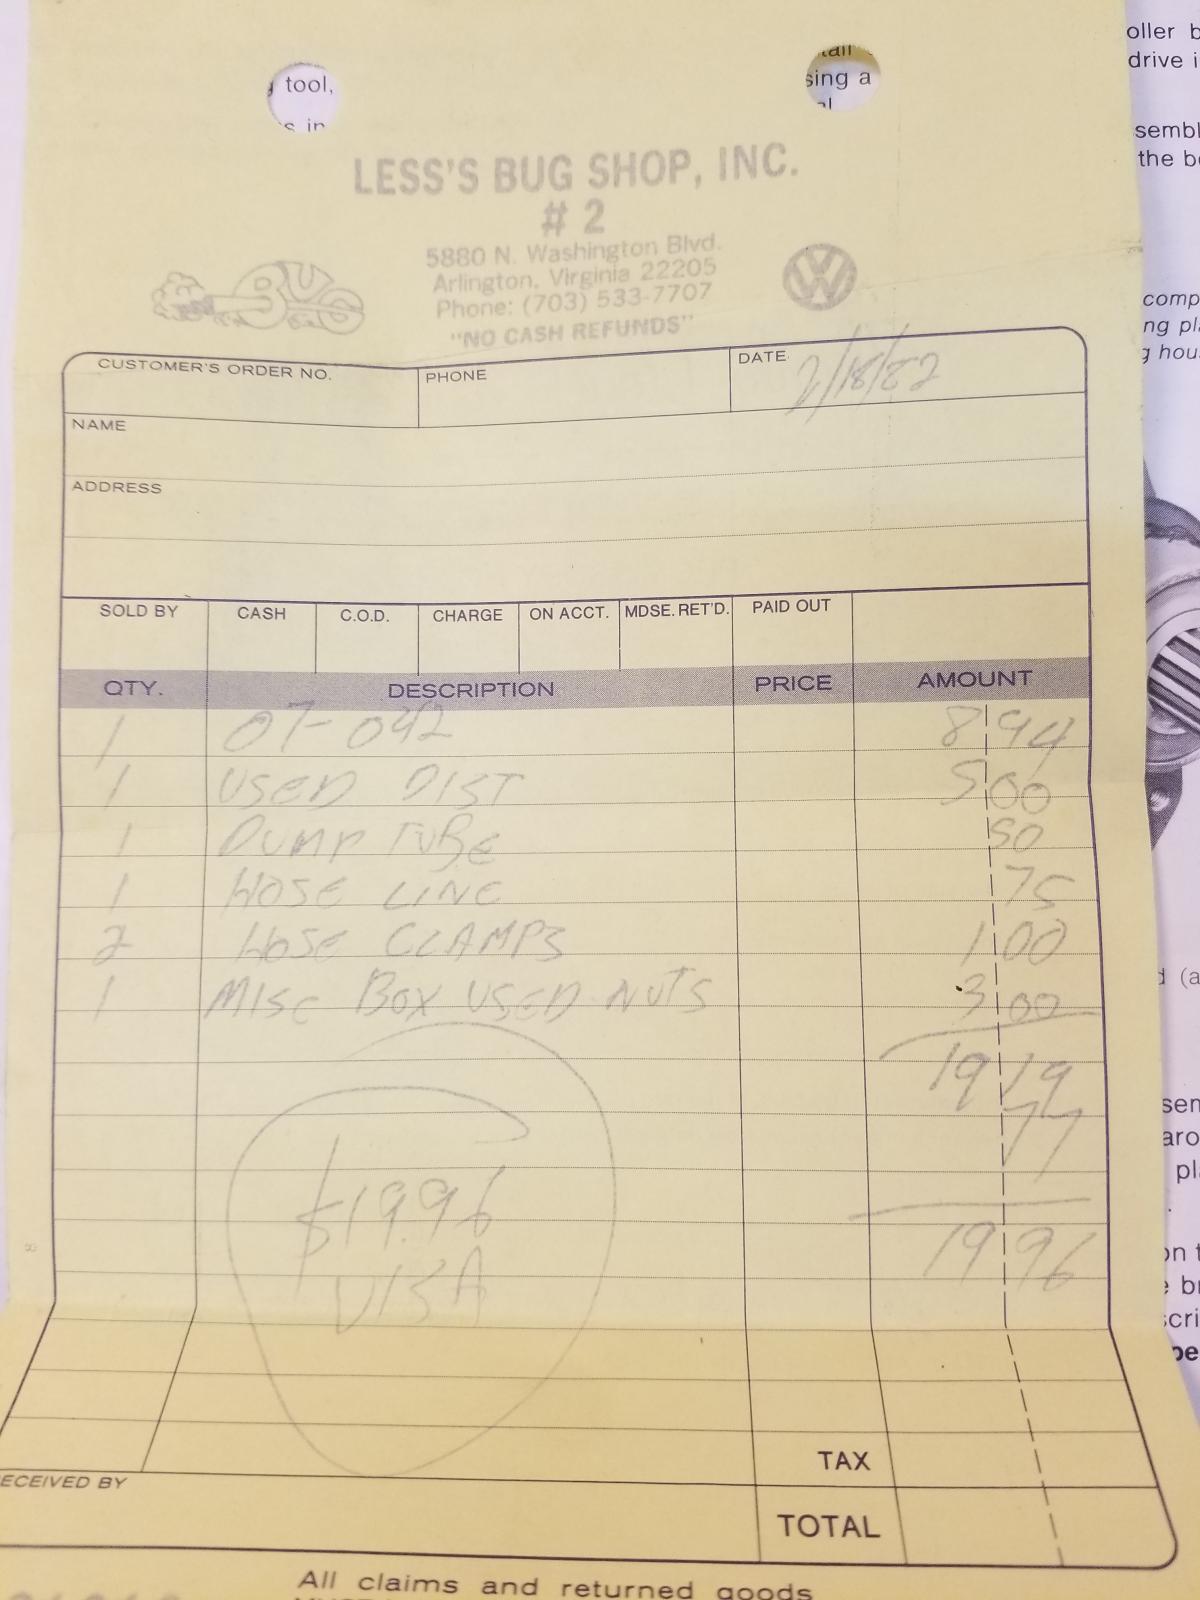 tool,
sing a
oller b
drive i
sembl
the be
LESS'S BUG SHOP, INC.
# 2
5880 N. Washington Blvd.
Arlington, Virginia 22205
Phone: (703) 533-7707
"NO CASH REFUNDS"
BUG
VW
comp
ng pla
g hous
CUSTOMER'S ORDER NO.
PHONE
DATE 2/18/82
NAME
ADDRESS
SOLD BY CASH C.O.D. CHARGE ON ACCT. MDSE. RET'D. PAID OUT
QTY. DESCRIPTION PRICE AMOUNT
1 07-042 8 94
1 USED DIST 5 00
1 DUMP TUBE 50
1 HOSE LINE 75
2 HOSE CLAMPS 1 00
1 MISC BOX USED NUTS 3 00
19 19
77
19 96
$19.96
VISA
TAX
ECEIVED BY
TOTAL
All claims and returned goods